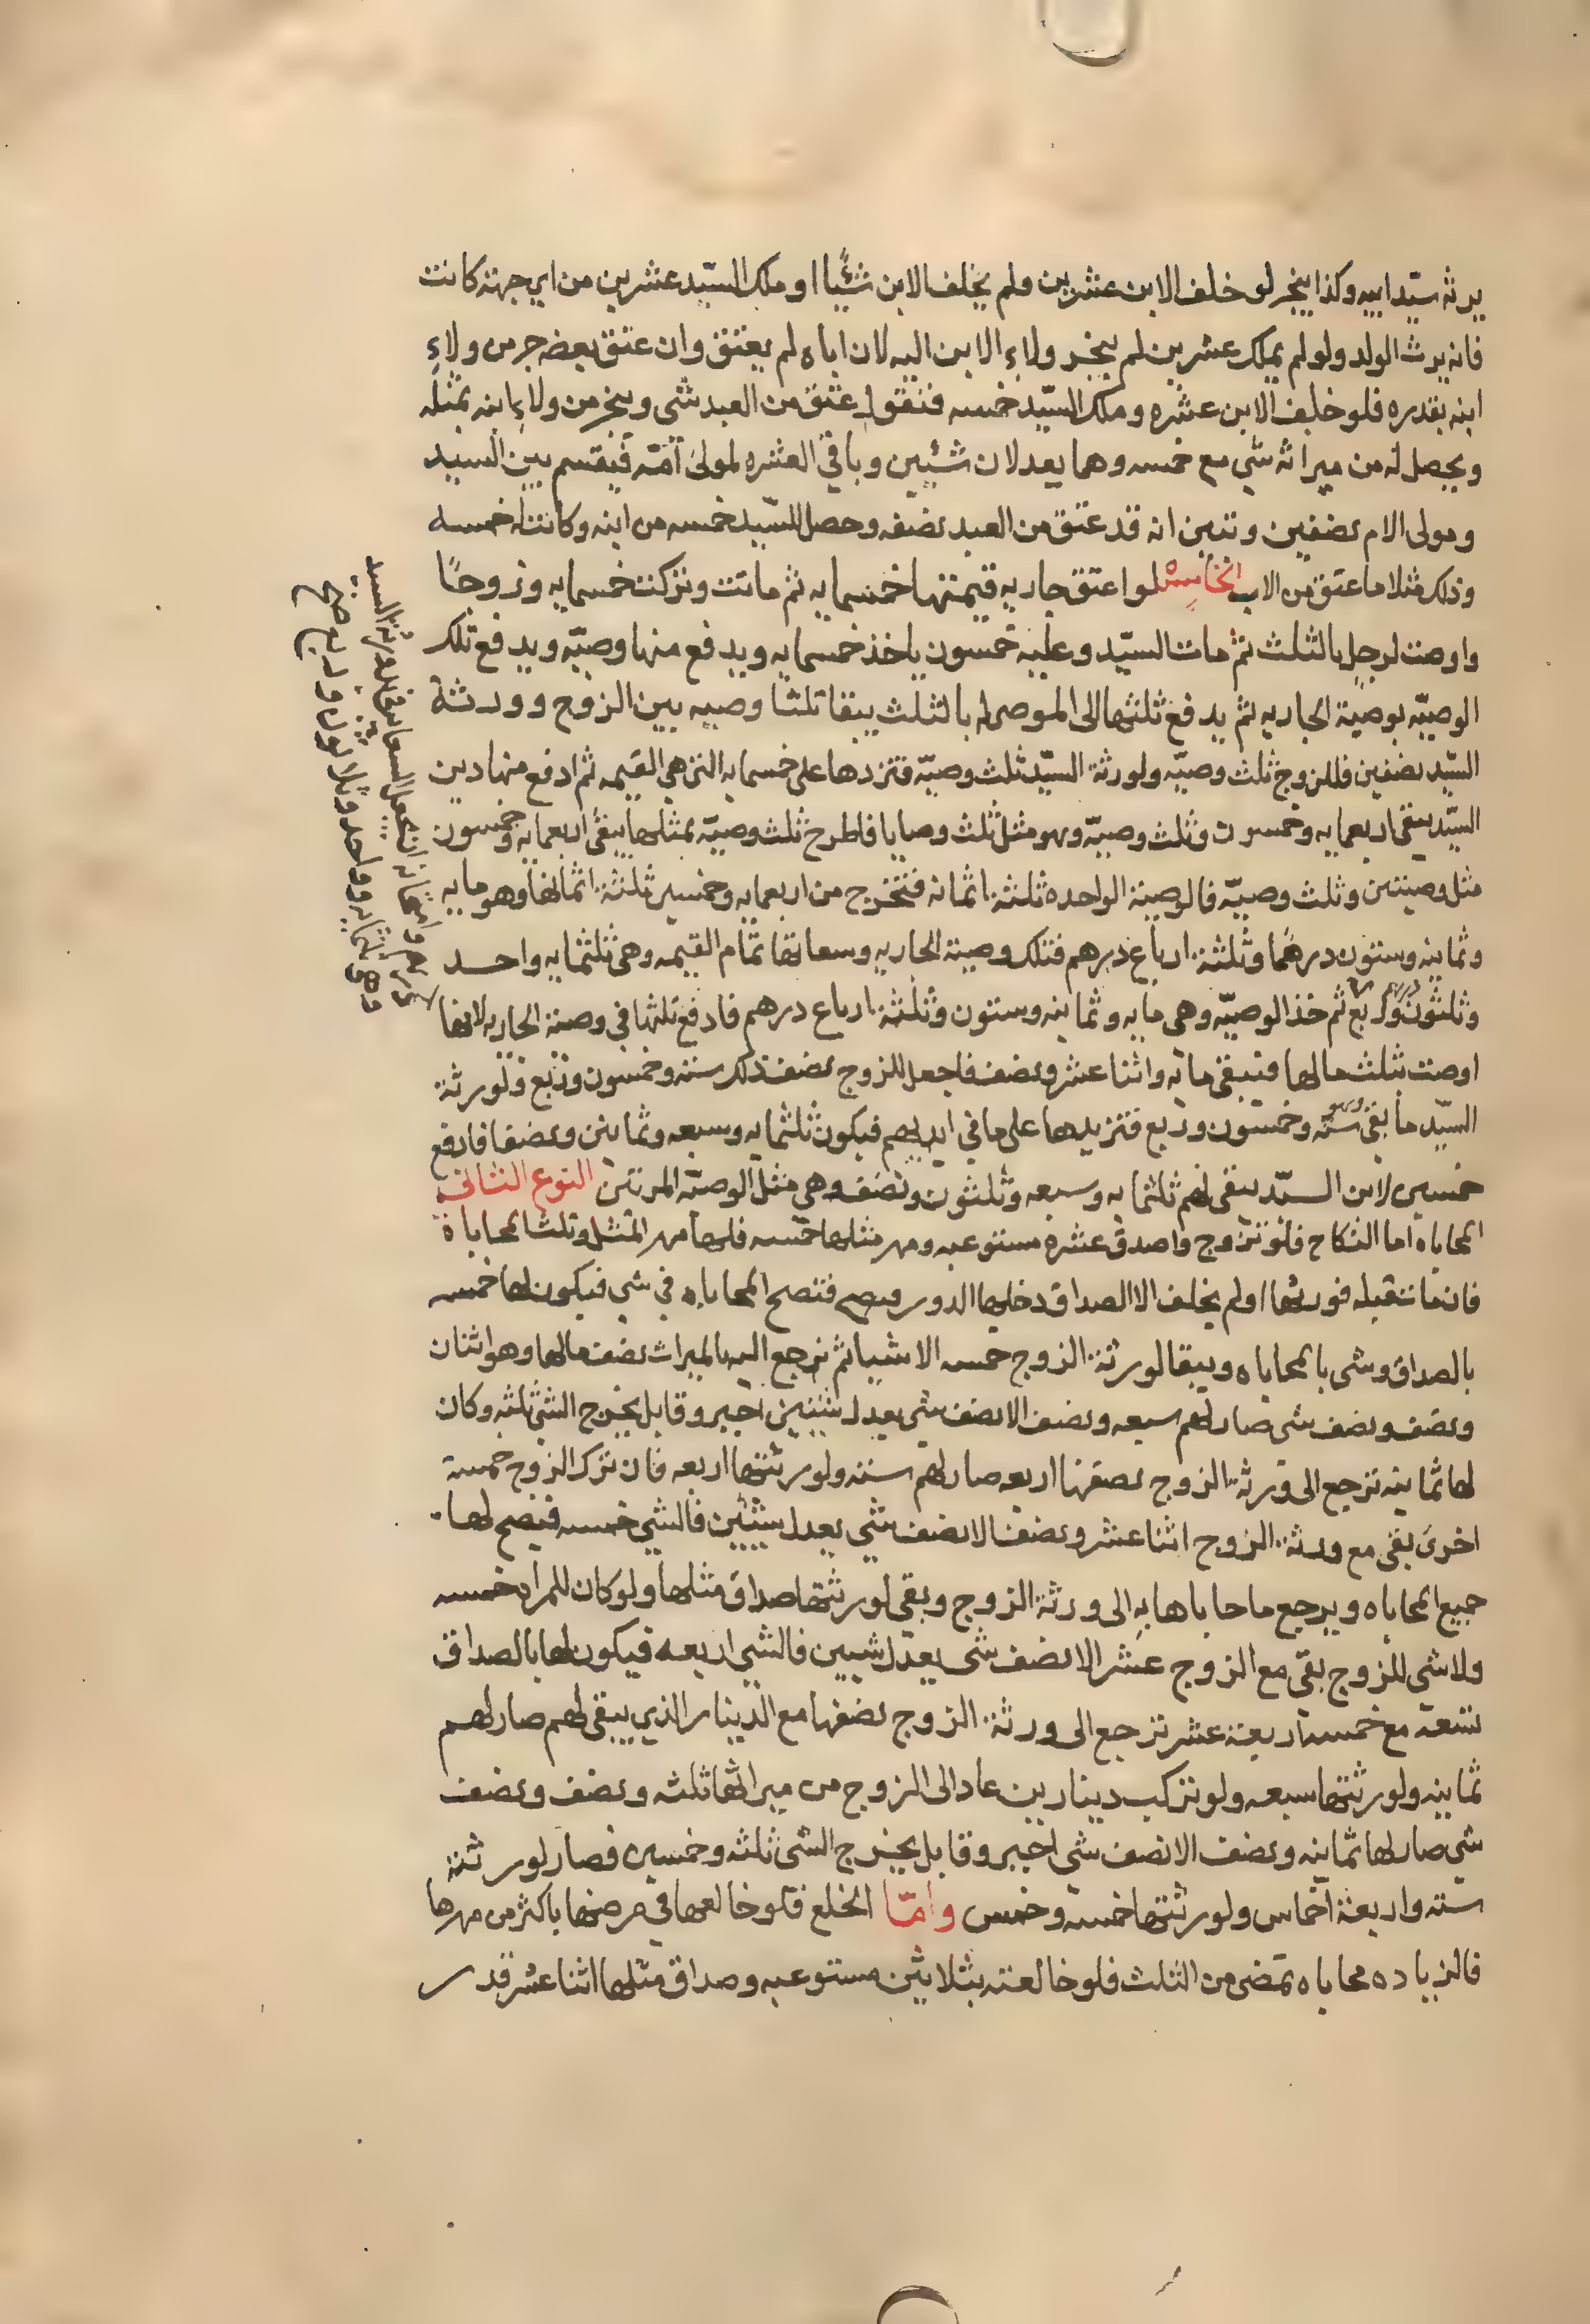 يرثه سيّد ابيه وكذا ينجر لو خلف الابن عشرين ولم يخلف الابن شئًيا او ملك السيّد عشرين من اي جهة كانت
فانه يرث الولد ولو لم يملك عشرين لم ينجر ولاء الابن اليه لان اباه لم يعتق وان عتق بعضه جر من ولاءِ
ابنه بقدره فلو خلف الابن عشره وملك السيّد خمسه فنقول عتق من العبد شى وينجر من ولاءِ ابنه بمثله
ويحصل له من ميراثه شي مع خمسه وهما يعدلان شيئين وباقي العشره لمولى امّه فيقسم بين السيد
ومولى الام نصفين وتبين انه قد عتق من العبد نصفه وحصل للسيّد خمسه من ابنه وكانت له خمسه
وذلك مثلا ما عتق من الاب الخامس لو اعتق جاريه قيمتها خمسمايه ثم ماتت وتركت خمسمايه وزوجًا
واوصت لرجل بالثلث ثم مات السيّد وعليه خمسون ياخذ خمسمايه ويدفع منها وصيّه ويدفع تلك
الوصيّه بوصية الجاريه ثم يدفع ثلثها الى الموصى له بالثلث يبقا ثلثا وصيه بين الزوج وورثة
السيّد نصفين فللزوج ثلث وصيّه ولورثة السيّد ثلث وصيّه فتزدها على خمسمايه التي هي القيمه ثم ادفع منها دين
السيّد يبقى اربعمايه وخمسون وثلث وصيّه وهو مثل ثلث وصايا فاطرح ثلث وصيّه بمثلها يبقى اربعمايه وخمسون
مثل وصيتين وثلث وصيّه فالوصية الواحده ثلثة اثمانه فتخرج من اربعمايه وخمسين ثلثة اثمانها وهو مايه
وثمانيه وستون درهمًا وثلثة ارباع درهم فتلك وصية الجاريه وسعايتها تمام القيمه وهي ثلثمايه واحد
وثلثون وربع درهم ثم خذ الوصيّه وهي مايه وثمانيه وستون وثلثة ارباع درهم فادفع ثلثها في وصية الجاريه لانها
اوصت بثلث مالها فيبقى مايه واثنا عشر ونصف فاجعل للزوج نصف ذلك سته وخمسون وربع ولورثة
السيّد ما بقي وهو سته وخمسون وربع فتزيدها على ما في ايديهم فيكون ثلثمايه وسبعه وثمانين ونصفا فادفع
خمسين لابن السيّد يبقى لهم ثلثمايه وسبعه وثلثون ونصف وهي مثل الوصيّه المرتين النوع الثاني
المحاباه اما النكاح فلو تزوج واصدق عشرة مستوعبه ومهر مثلها خمسه فلها مهر المثل وثلث المحاباة
فان ماتت قبله فورثها ولم يخلف الا الصداق دخلها الدور فتصح المحاباه في شي فيكون لها خمسه
بالصداق وشى بالمحاباه ويبقا لورثة الزوج خمسه الا شيا ثم يرجع اليه بالميراث نصف مالها وهو اثنان
ونصف ونصف شى صار لهم سبعه ونصف الا نصف شي يعدل شيئين اجبر وقابل يخرج الشي ثلثه وكان
لها ثمانيه ترجع الى ورثة الزوج نصفها اربعه صار لهم سته ولورثتها اربعه فان ترك الزوج خمسة
اخرى بقى مع ورثة الزوج اثنا عشر ونصف الا نصف شي يعدل شيئين فالشي خمسه فيصح لها
جميع المحاباه ويرجع ما حاباها به الى ورثة الزوج وبقي لورثتها صداق مثلها ولو كان للمراة خمسه
ولا شي للزوج بقي مع الزوج عشر الا نصف شى يعدل شيين فالشي اربعه فيكون لها بالصداق
تسعة مع خمسه اربعة عشر ترجع الى ورثة الزوج نصفها مع الدينار الذي يبقى لهم صار لهم
ثمانيه ولورثتها سبعه ولو تركت دينارين عاد الى الزوج من ميراثها ثلثه ونصف ونصف
شي صار لها ثمانيه ونصف الا نصف شي اجبر وقابل يخرج الشى ثلثه وخمسين فصار لورثته
سته واربعة اخماس ولورثتها خمسه وخمس وامّا الخلع فلو خالعها في مرضها باكثر من مهرها
فالزياده محاباه تمضى من الثلث فلو خالعته بثلاثين مستوعبه وصداق مثلها اثنا عشر قدر